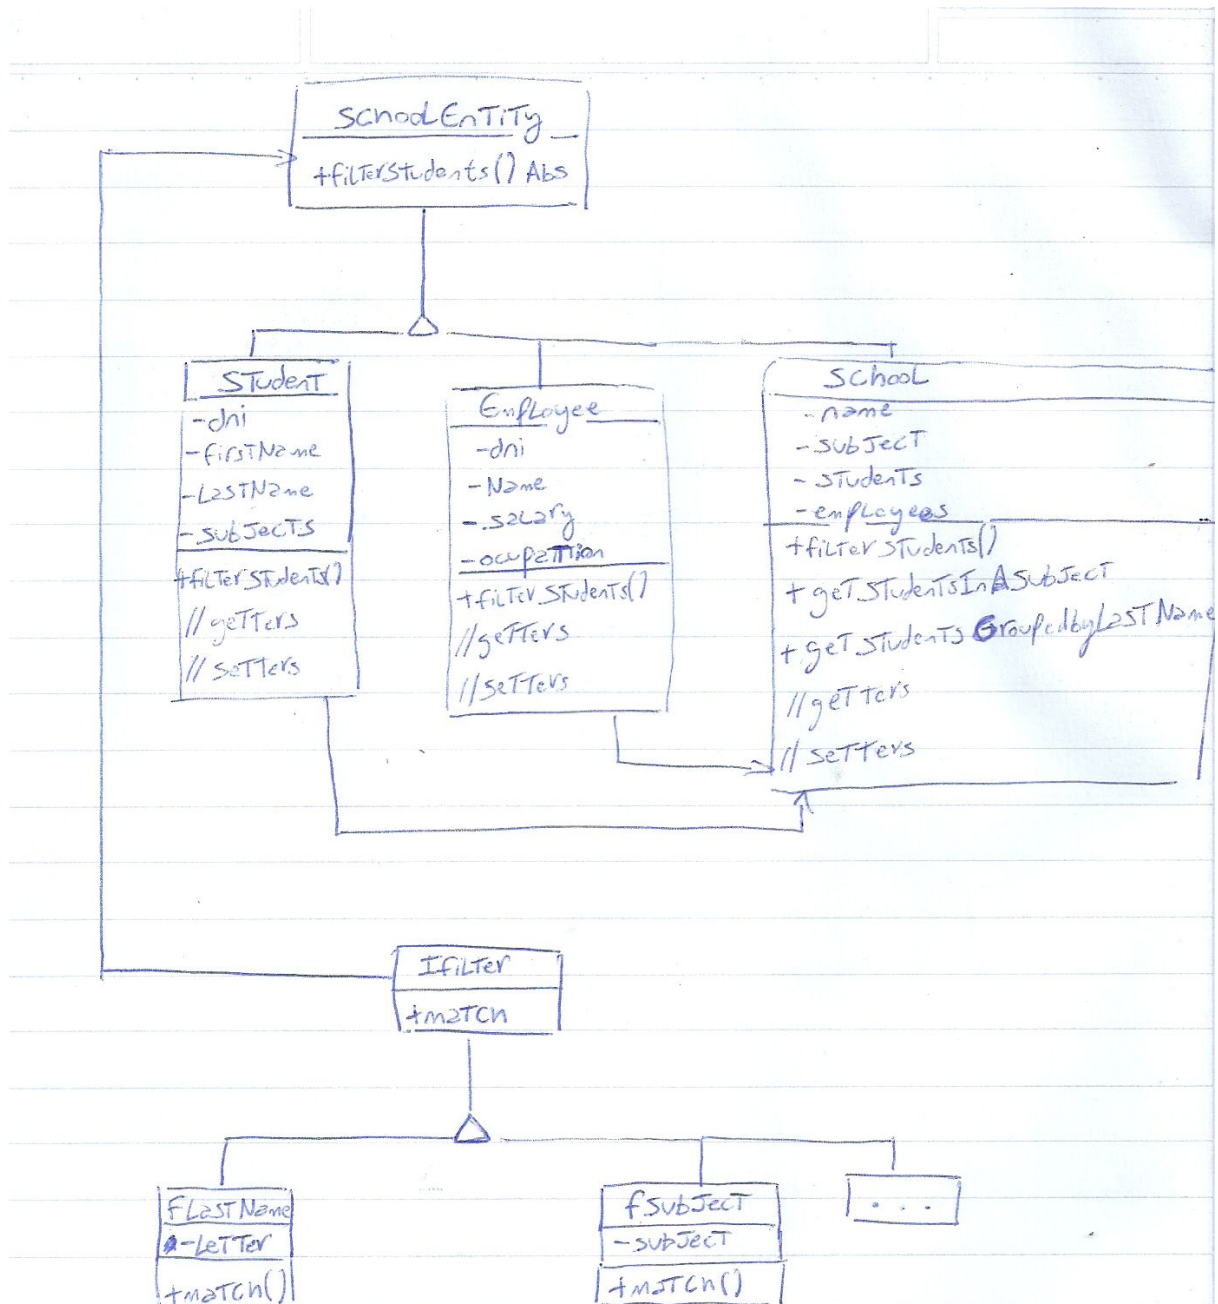 SchoolEntity
+filterStudents() Abs
Student
-dni
-firstName
-LastName
-subJects
+filterStudents()
//getters
//setters
EmpLoyee
-dni
-Name
-salary
-ocupattion
+filterStudents()
//getters
//setters
SchooL
-name
-subJect
-students
-empLoyees
+filterStudents()
+getStudentsInASubJect
+getStudentsGroupedbyLastName
//getters
//setters
IfiLter
+match
FLastName
-Letter
+match()
fSubJect
-subJect
+match()
...